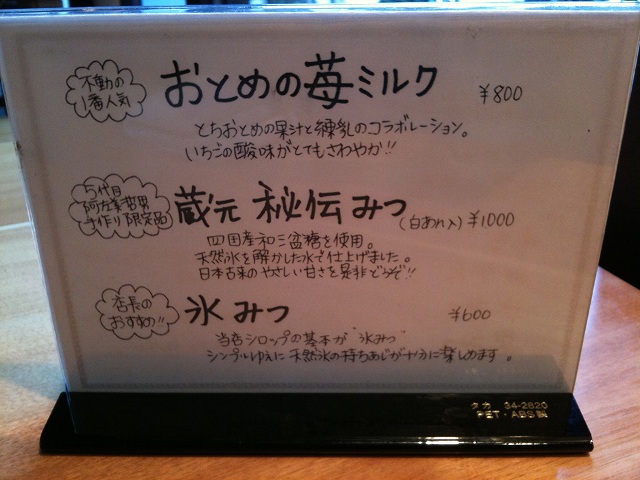 不動の
1番人気
おとめの苺ミルク ¥800
とちおとめの果汁と練乳のコラボレーション。
いちごの酸味がとてもさわやか!!
5代目
阿左美哲男
手作り限定品
蔵元 秘伝みつ (白あん入) ¥1000
四国産和三盆糖を使用。
天然氷を解かした水で仕上げました。
日本古来のやさしい甘さを是非どうぞ!!
店長の
おすすめ!!
氷みつ ¥600
当店シロップの基本が"氷みつ"
シンプルゆえに天然氷の持ちあじが十分に楽しめます。
タカ 34-2820
PET・ABS製